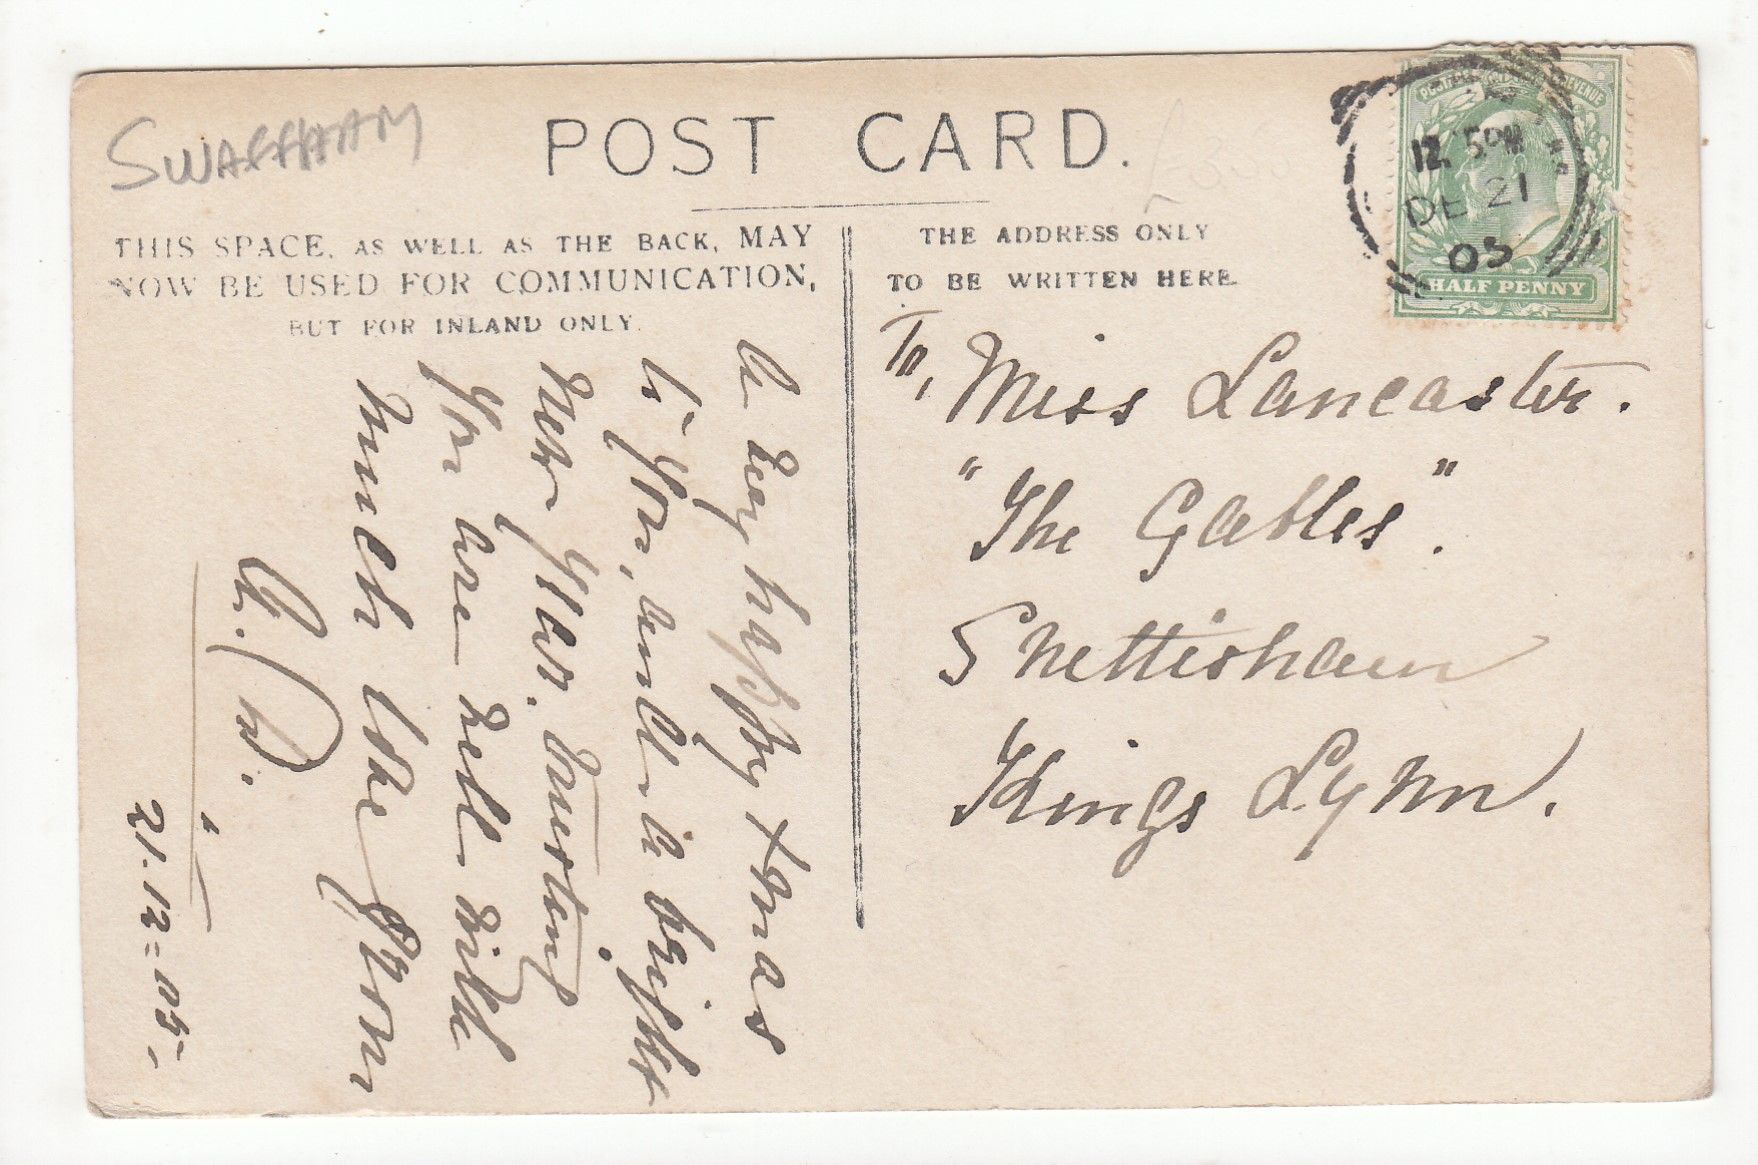 SWAFFHAM
POST CARD.
THIS SPACE, AS WELL AS THE BACK, MAY
NOW BE USED FOR COMMUNICATION,
BUT FOR INLAND ONLY.
THE ADDRESS ONLY
TO BE WRITTEN HERE.
12.15PM
DE 21
05
HALF PENNY
To,
Miss Lancaster.
"The Gables".
Snettisham
Kings Lynn.
A very happy Xmas
to you, and a bright
New Year. 
You are well 
much love from
A. W.
21.12=05,